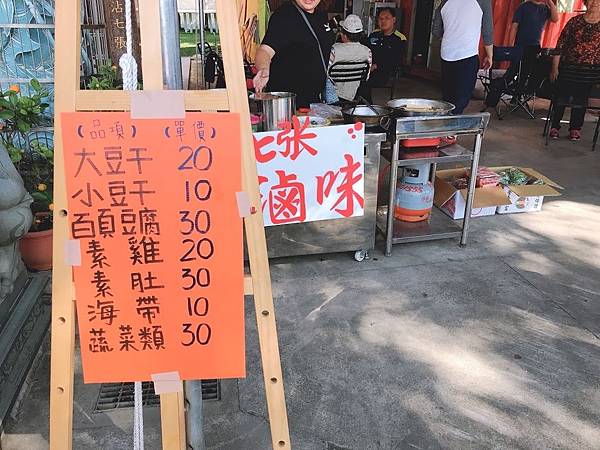 (品項) (單價)
大豆干 20
小豆干 10
百頁豆腐 30
素雞 20
素肚 30
海帶 10
蔬菜類 30
七张
滷味